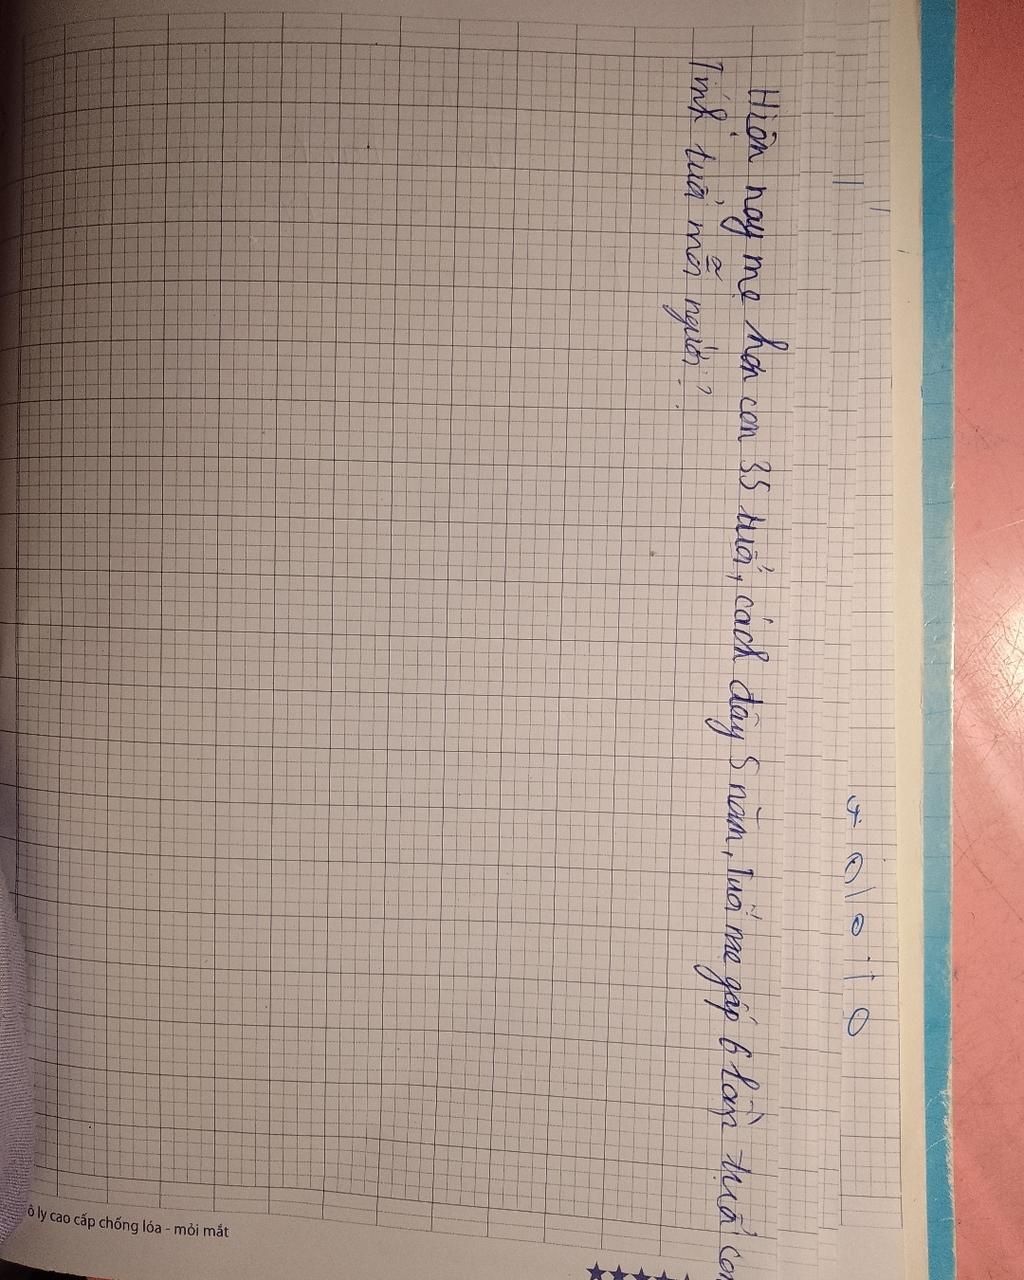 Hiện nay mẹ hơn con 35 tuổi, cách đây 5 năm, Tuổi mẹ gấp 6 lần tuổi con
Tính tuổi mỗi người?
ô ly cao cấp chống lóa - mỏi mắt